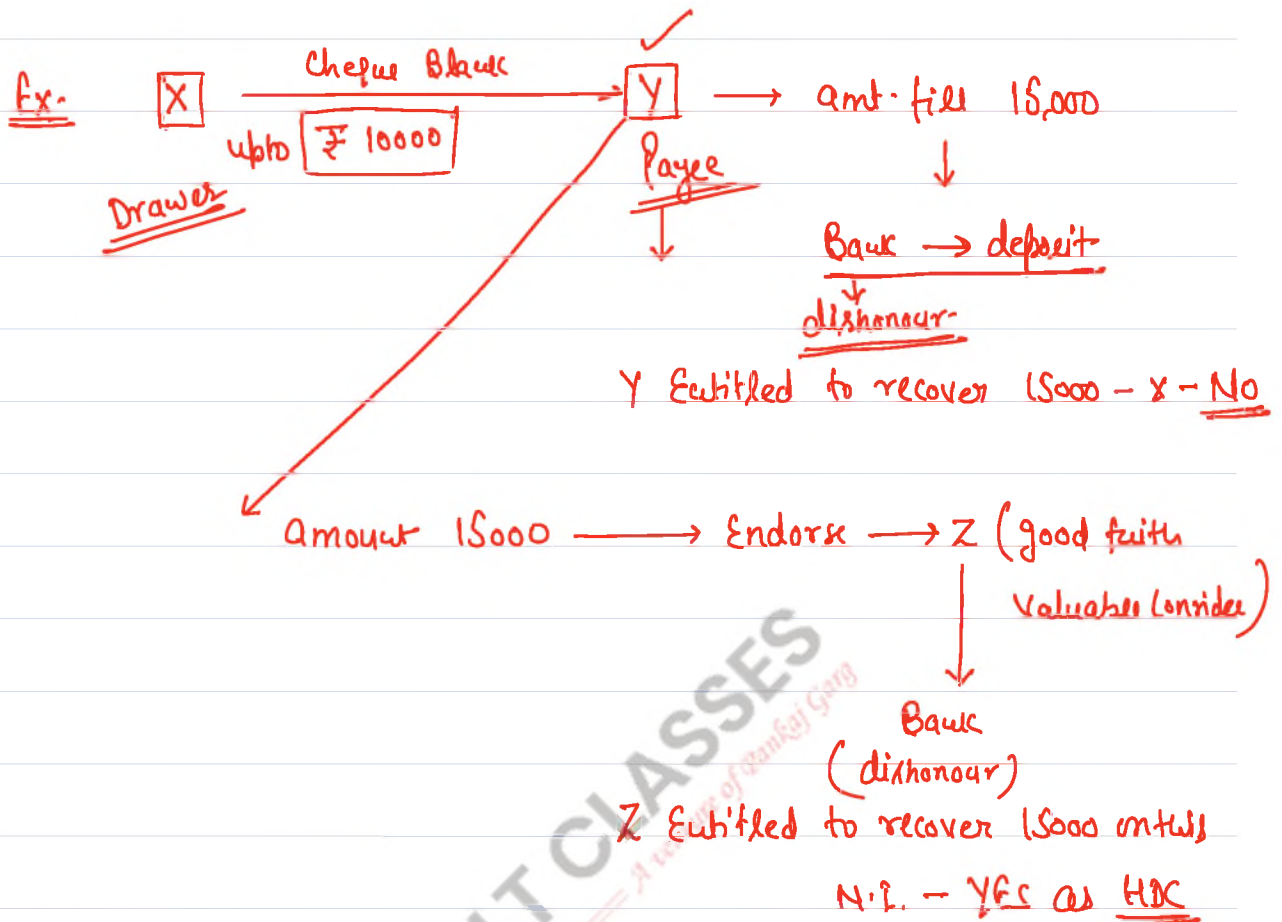 Ex. X Cheque Blank Y → amt. fill 15,000
upto ₹ 10000
Drawer Payee
Bank → deposit
dishonour
Y Entitled to recover 15000 - X - No
Amount 15000 → Endorse → Z (good faith
Valuable Conside)
Bank
(dishonour)
Z Entitled to recover 15000 on this
N.I. - YES as HDC
T CLASSES
A venture of Pankaj Garg